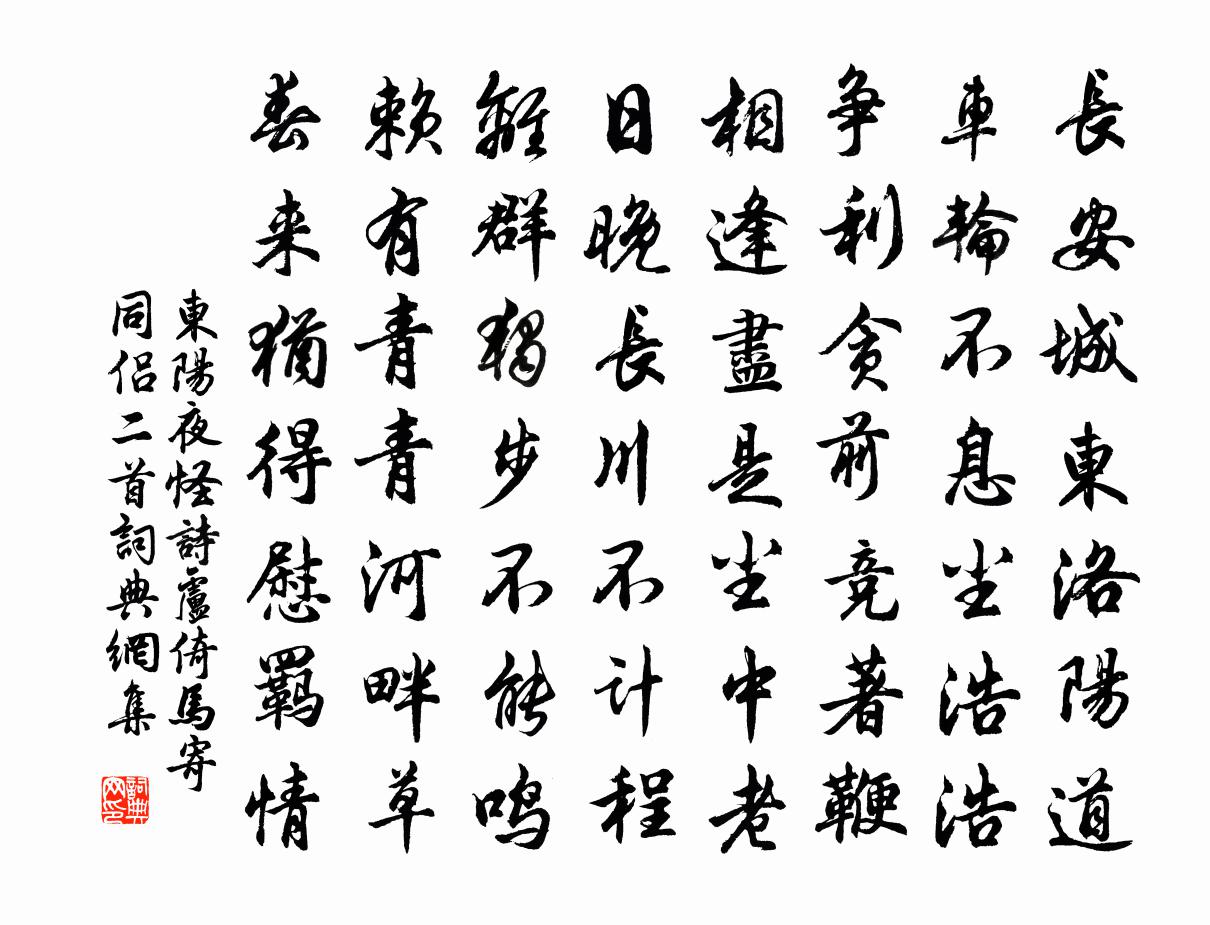 長安城東洛陽道
車輪不息塵浩浩
争利貪前競著鞭
相逢盡是塵中老
日晚長川不计程
離群獨步不能鳴
賴有青青河畔草
春来猶得慰羈情
東陽夜怪詩盧倚馬寄
同侶二首詞典網集
詞典
网印